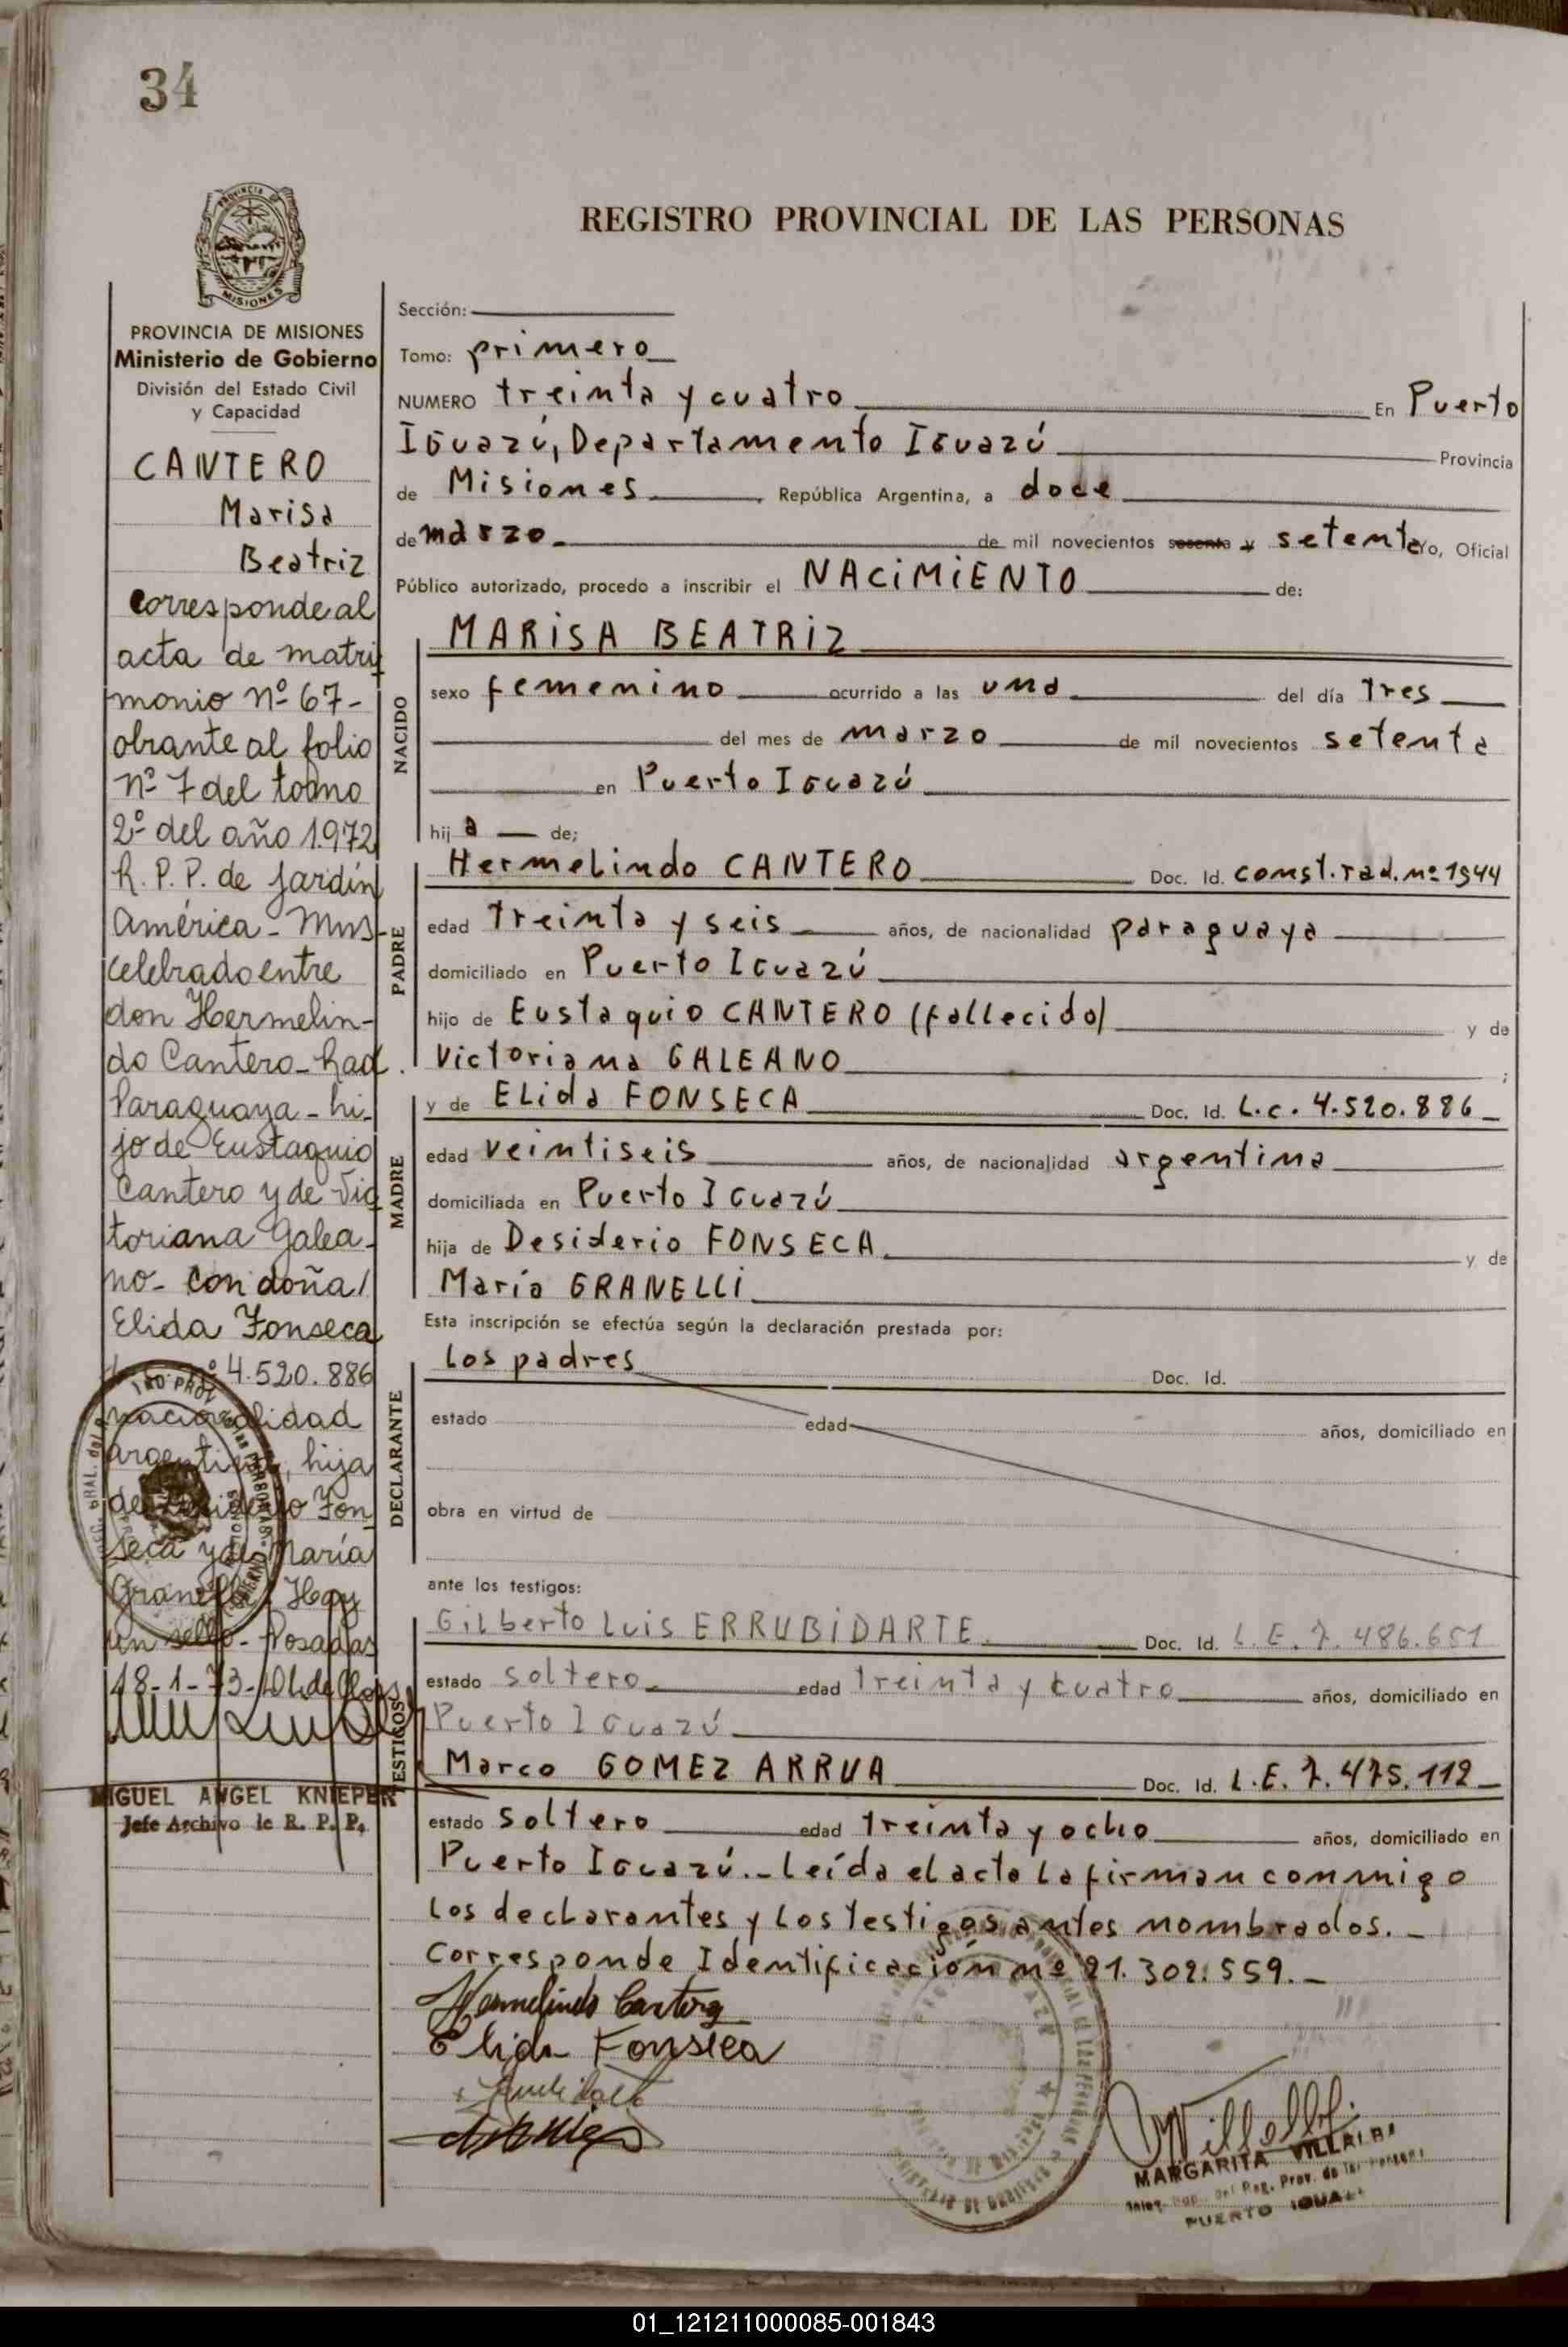 34
REGISTRO PROVINCIAL DE LAS PERSONAS
PROVINCIA DE
MISIONES
PROVINCIA DE MISIONES
Ministerio de Gobierno
División del Estado Civil
y Capacidad
CANTERO
Marisa
Beatriz
Corresponde al
acta de matri
monio nº 67-
obrante al folio
nº 7 del tomo
2º del año 1972
R. P. P. de Jardín
América - Mns-
celebrado entre
don Hermelin-
do Cantero - Rad.
Paraguaya - hi-
jo de Eustaquio
Cantero y de Vic
toriana Galea-
no - con doña
Elida Fonseca
4.520.886
nacionalidad
argentina, hija
de Desiderio Fon
seca y de María
Granelli. Hay
un sello - Posadas
18-1-73-
MIGUEL ANGEL KNIEPER
Jefe Archivo de R. P. P.
Sección:
Tomo: primero
NUMERO treinta y cuatro En Puerto
Iguazú, Departamento Iguazú Provincia
de Misiones República Argentina, a doce
de marzo. de mil novecientos sesenta y setenta yo, Oficial
Público autorizado, procedo a inscribir el NACIMIENTO de:
NACIDO
MARISA BEATRIZ
sexo femenino ocurrido a las una del día tres
del mes de marzo de mil novecientos setenta
en Puerto Iguazú
hija de;
PADRE
Hermelindo CANTERO Doc. Id. const. rad. nº 1944
edad treinta y seis años, de nacionalidad paraguaya
domiciliado en Puerto Iguazú
hijo de Eustaquio CANTERO (fallecido) y de
Victoriana GALEANO ;
MADRE
y de Elida FONSECA Doc. Id. L.c. 4.520.886
edad veintiseis años, de nacionalidad argentina
domiciliada en Puerto Iguazú
hija de Desiderio FONSECA y de
María GRANELLI
Esta inscripción se efectúa según la declaración prestada por:
DECLARANTE
los padres Doc. Id.
estado edad años, domiciliado en
obra en virtud de
ante los testigos:
TESTIGOS
Gilberto Luis ERRUBIDARTE Doc. Id. L.E. 7.486.651
estado soltero edad treinta y cuatro años, domiciliado en
Puerto Iguazú
Marco GOMEZ ARRUA Doc. Id. L.E. 7.475.112
estado soltero edad treinta y ocho años, domiciliado en
Puerto Iguazú.- Leída el acta la firman conmigo
los declarantes y los testigos antes nombrados.-
Corresponde Identificación nº 21.302.559.-
Hermelindo Cantero
Elida Fonseca
MARGARITA VILLALBA
Prov. de las Personas
PUERTO IGUAZU
01_121211000085-001843